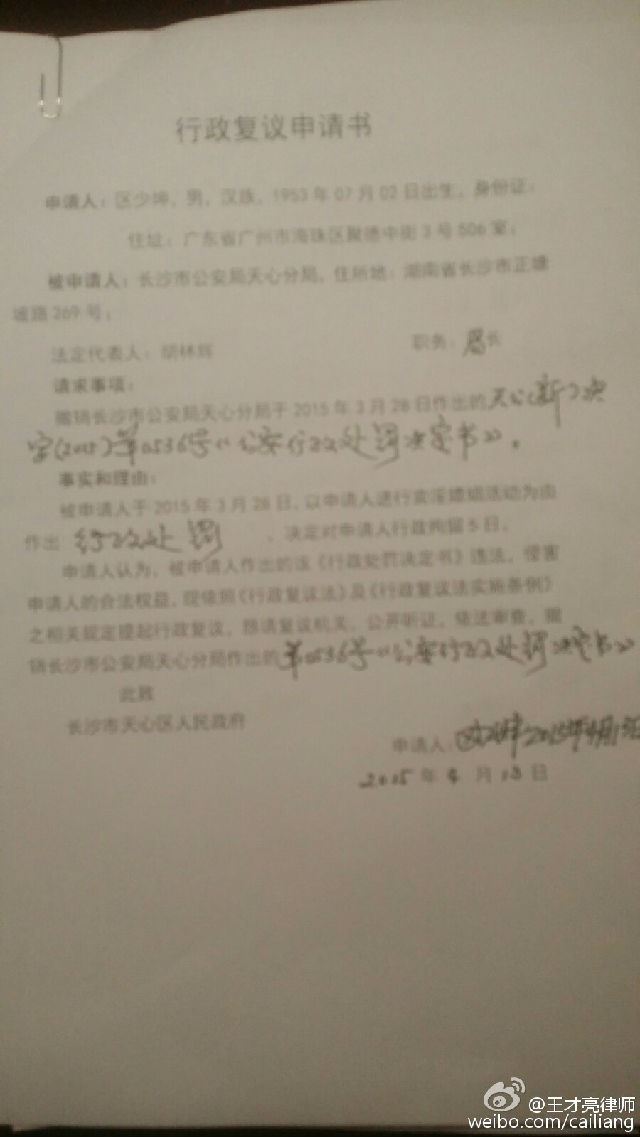 行政复议申请书
申请人：区少坤，男，汉族，1953年07月02日出生，身份证：
住址：广东省广州市海珠区聚德中街3号506室；
被申请人：长沙市公安局天心分局，住所地：湖南省长沙市正塘
坡路269号；
法定代表人：胡林辉 职务：局长
请求事项：
撤销长沙市公安局天心分局于2015年3月28日作出的天公(新)决
字(2015)第0536号《公安行政处罚决定书》。
事实和理由：
被申请人于2015年3月28日，以申请人进行卖淫嫖娼活动为由
作出 行政处罚 ，决定对申请人行政拘留5日。
申请人认为，被申请人作出的该《行政处罚决定书》违法，侵害
申请人的合法权益，现依照《行政复议法》及《行政复议法实施条例》
之相关规定提起行政复议，恳请复议机关，公开听证，依法审查，撤
销长沙市公安局天心分局作出的第0536号《公安行政处罚决定书》
此致
长沙市天心区人民政府
申请人：区少坤 2015年4月13日
2015年4月13日
@王才亮律师
weibo.com/cailiang